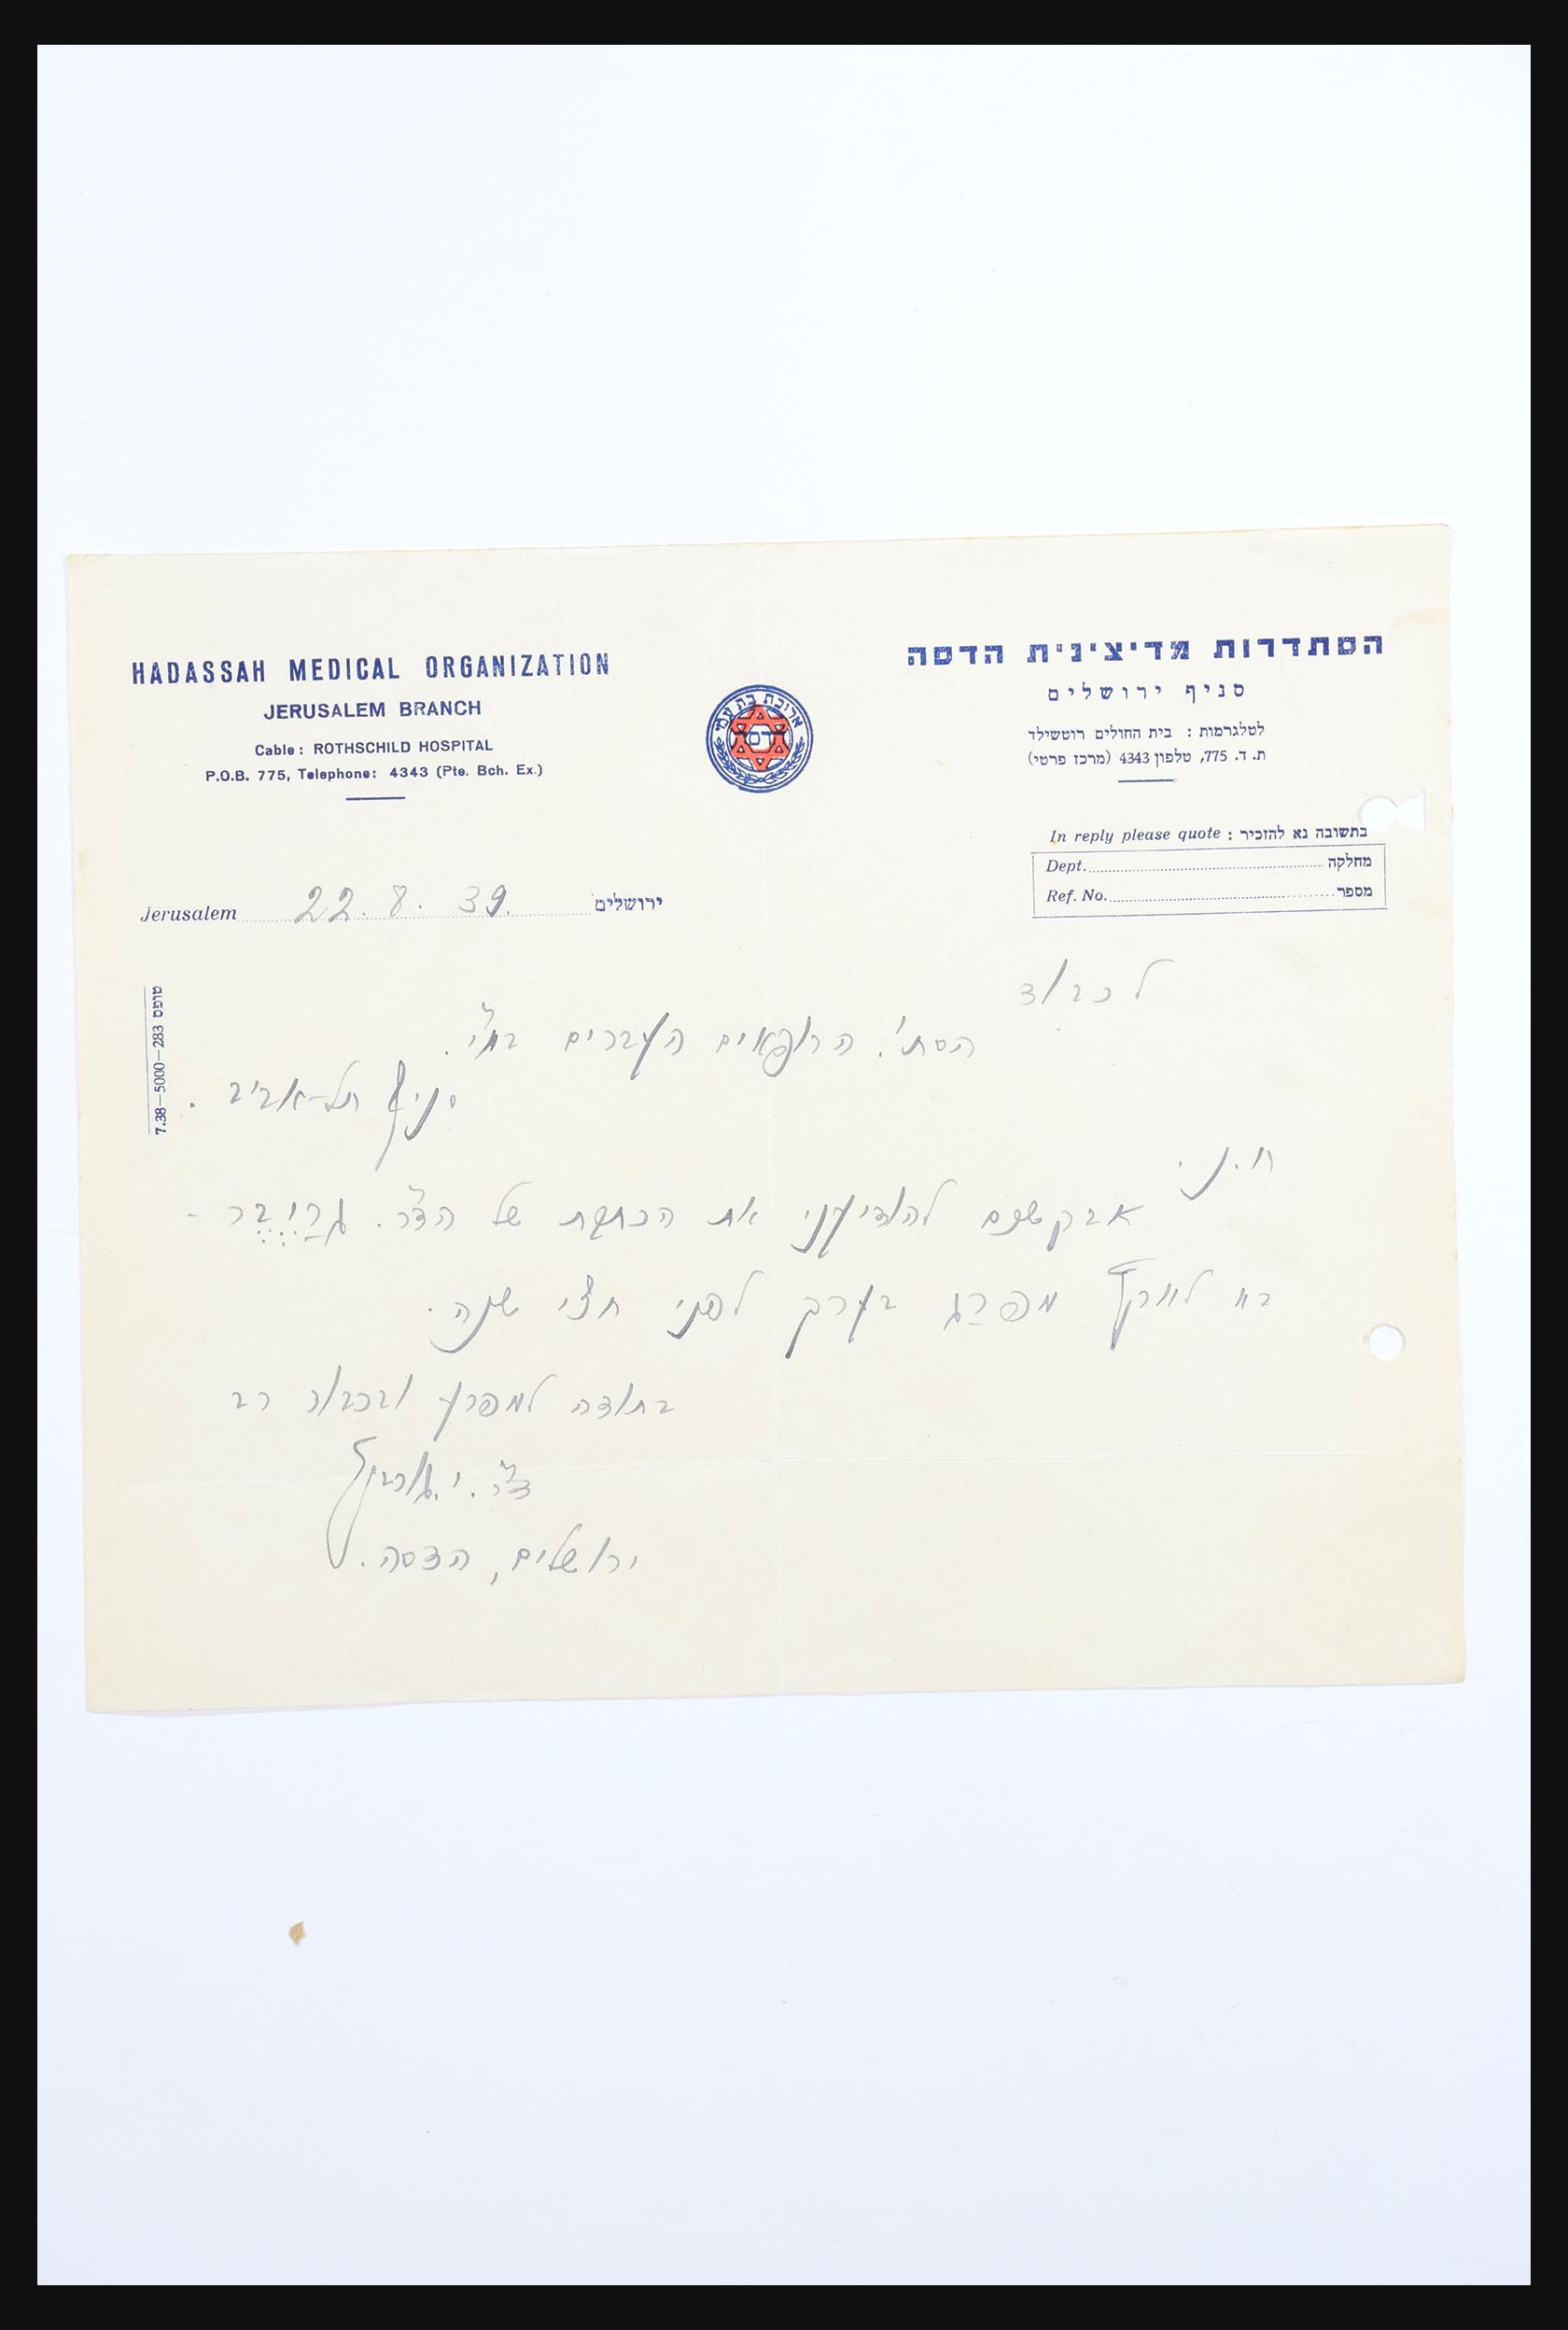 HADASSAH MEDICAL ORGANIZATION
JERUSALEM BRANCH
Cable: ROTHSCHILD HOSPITAL
P.O.B. 775, Telephone: 4343 (Pte. Bch. Ex.)
ארוכת בת עמי
הדסה
הסתדרות מדיצינית הדסה
סניף ירושלים
לטלגרמות: בית החולים רוטשילד
ת. ד. 775, טלפון 4343 (מרכז פרטי)
In reply please quote: בתשובה נא להזכיר
Dept. מחלקה
Ref. No. מספר
Jerusalem 22.8.39. ירושלים
טופס 283—5000—7.38
לכבוד
הסת'. הרופאים העברים בא"י.
סניף תל-אביב.
א.נ.
אבקשכם להודיעני את הכתבת של הד"ר. גרַוּבֶּר -
בא לארץ מפרַג בערך לפני חצי שנה.
בתודה למפרע ובכבוד רב
ד"ר. י.
ירושלים, הדסה.